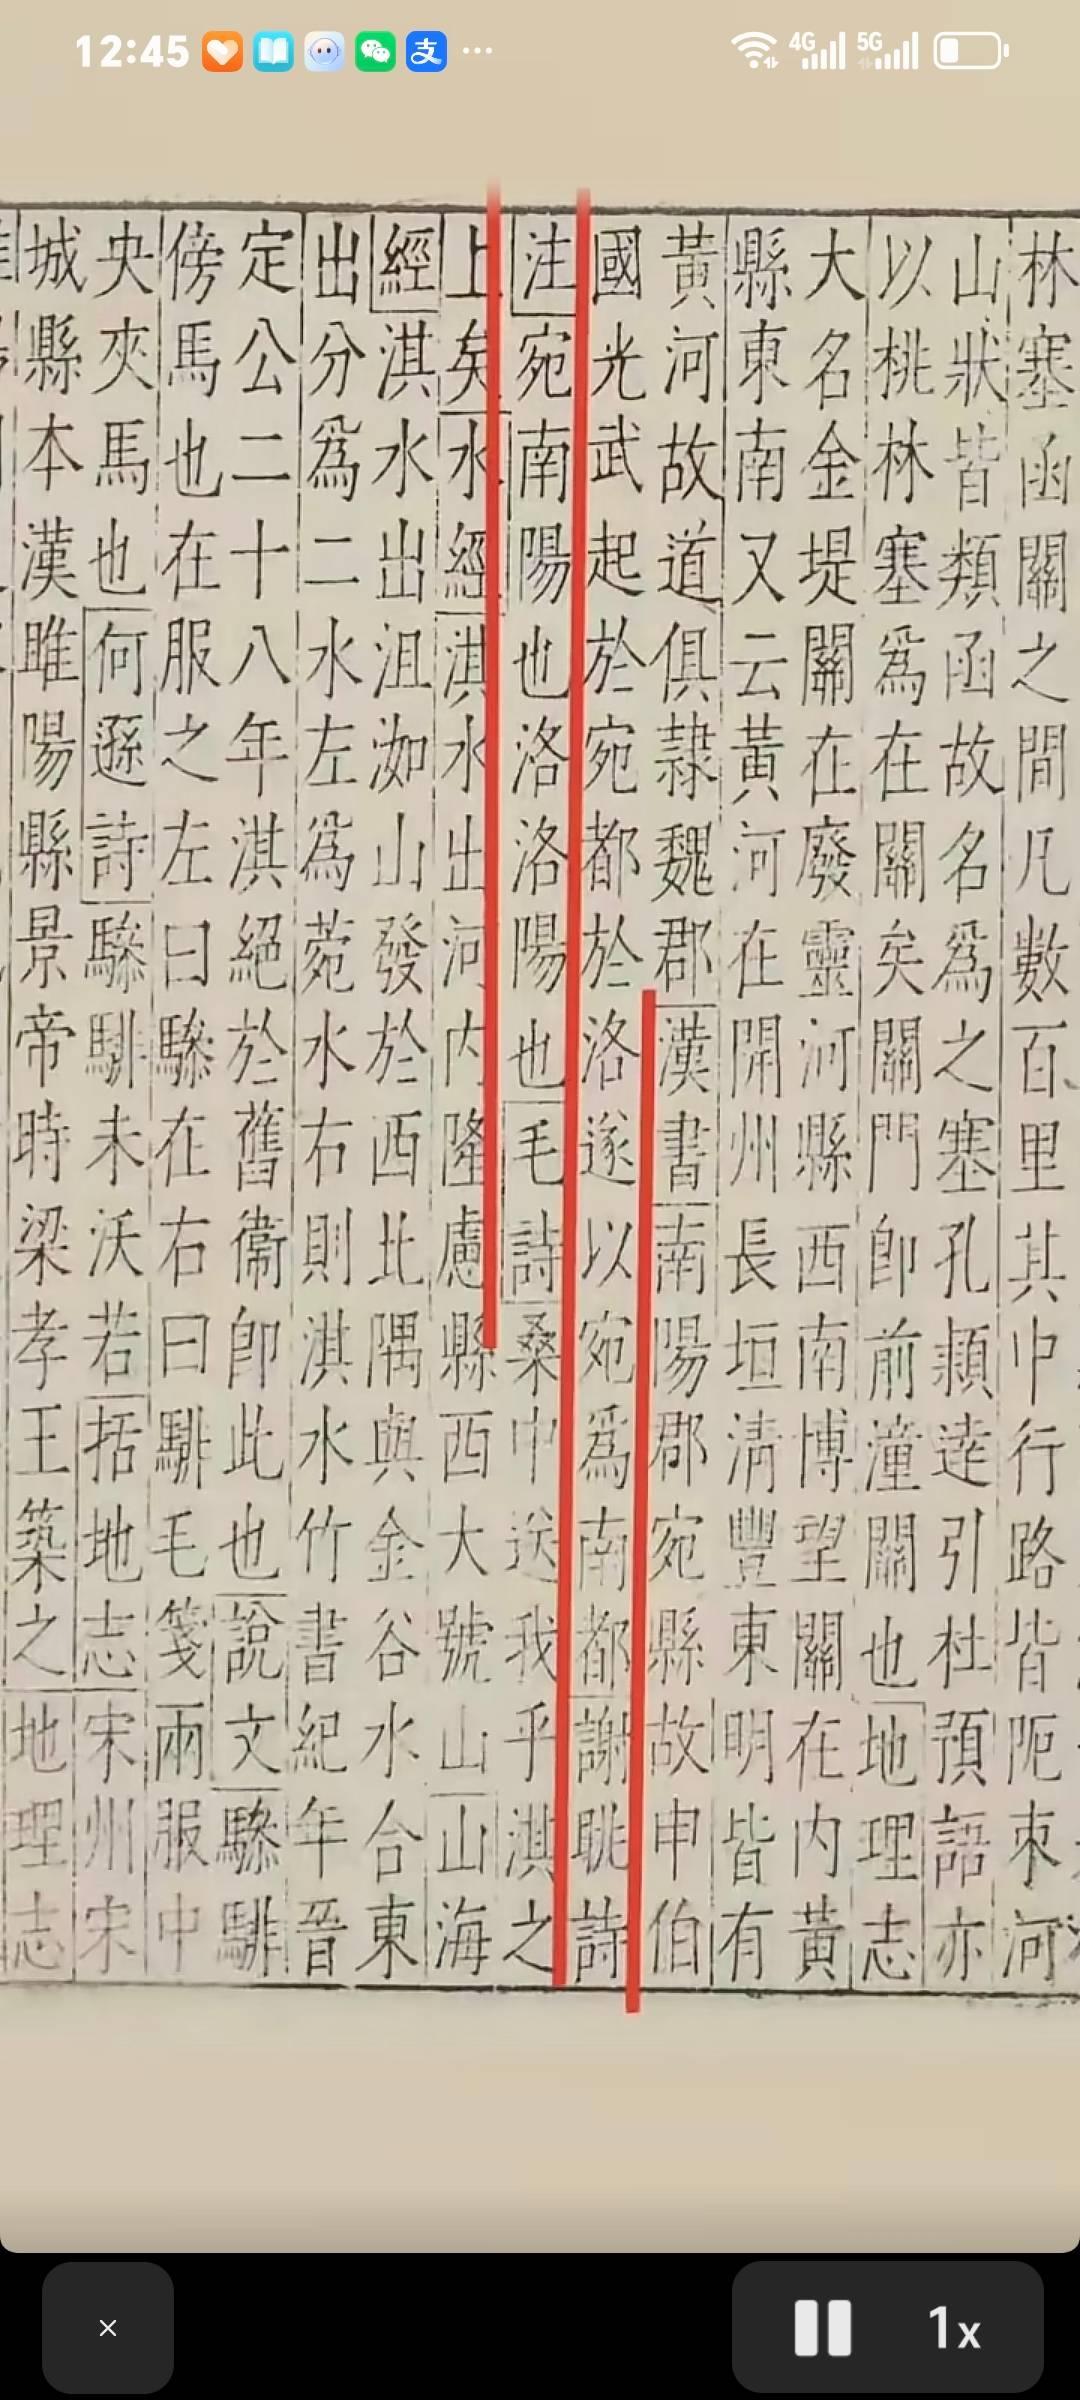 12:45
4G 5G
林塞函關之間凡數百里其中行路皆阨束河
山狀皆類函故名為之塞孔穎逹引杜預語亦
以桃林塞爲在關矣關門即前潼關也地理志
大名金堤關在廢靈河縣西南博望關在内黃
縣東南又云黃河在開州長垣清豐東明皆有
黃河故道俱隸魏郡漢書南陽郡宛縣故申伯
國光武起於宛都於洛遂以宛爲南都謝眺詩
注宛南陽也洛洛陽也毛詩桑中送我乎淇之
上矣水經淇水出河内隆慮縣西大號山山海
經淇水出沮洳山發於西北隅與金谷水合東
出分爲二水左爲菀水右則淇水竹書紀年晉
定公二十八年淇絕於舊衞即此也說文驂騑
傍馬也在服之左曰驂在右曰騑毛箋兩服中
央夾馬也何遜詩驂騑未沃若括地志宋州宋
城縣本漢雎陽縣景帝時梁孝王築之地理志
× 1x